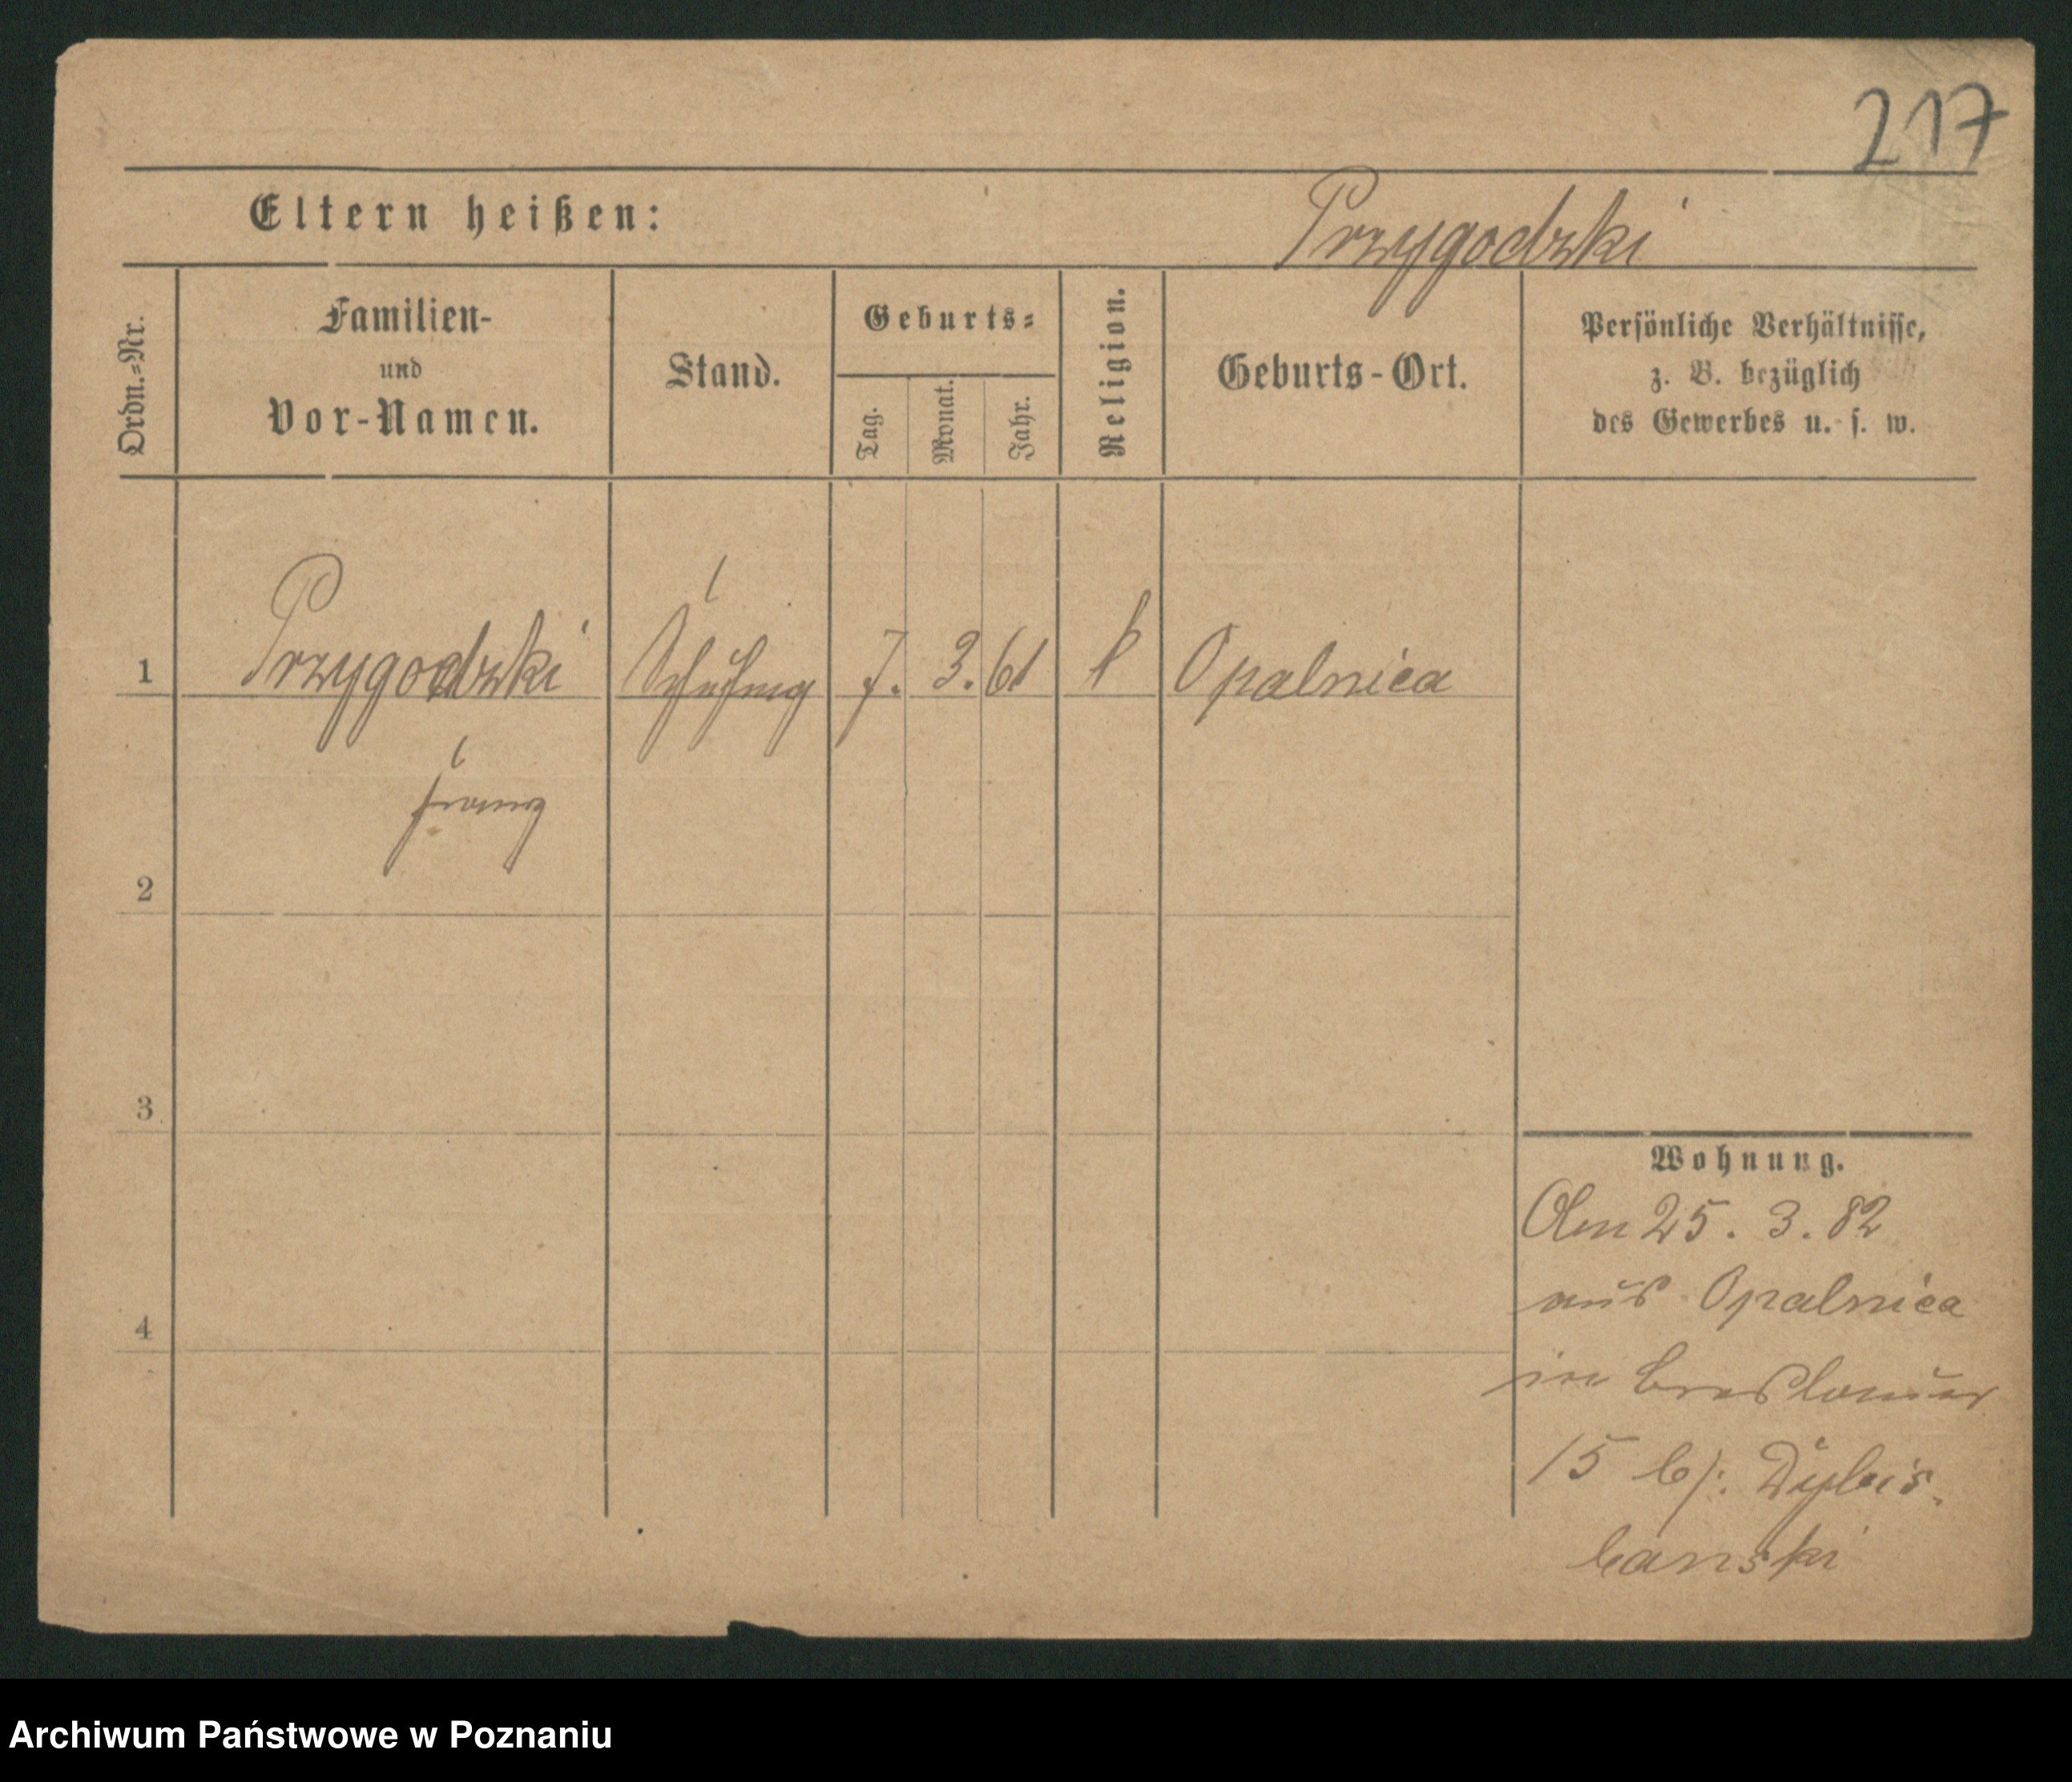 217
Eltern heißen:
Przygodzki
Ordn.=Nr.
Familien-
und
Vor-Namen.
Stand.
Geburts=
Tag.
Monat.
Jahr.
Religion.
Geburts-Ort.
Persönliche Verhältnisse,
z. B. bezüglich
des Gewerbes u. s. w.
1
Przygodzki
7. 3. 61
k
Opalnica
Franz
2
3
4
Wohnung.
Am 25. 3. 82
aus Opalnica
in Breslauer
15 b/:
Archiwum Państwowe w Poznaniu